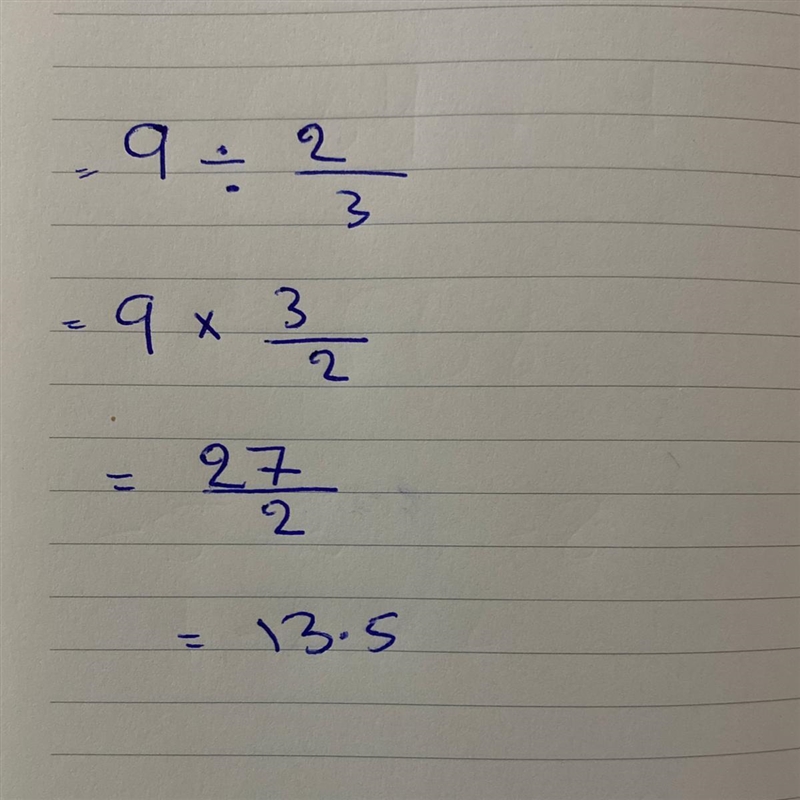 = 9 ÷ 2/3
= 9 × 3/2
= 27/2
= 13.5